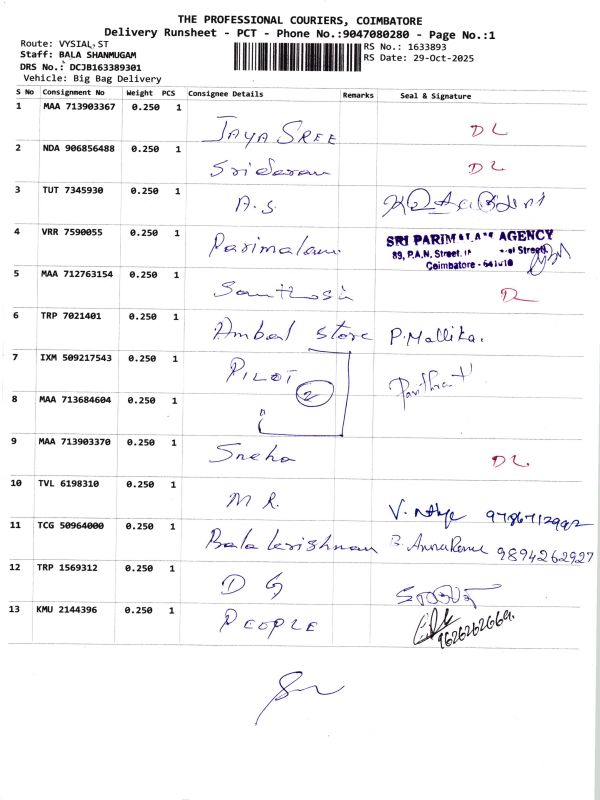 THE PROFESSIONAL COURIERS, COIMBATORE
Delivery Runsheet - PCT - Phone No.:9047080280 - Page No.:1
Route: VYSIAL,ST
RS No.: 1633893
Staff: BALA SHANMUGAM
RS Date: 29-Oct-2025
DRS No.: DCJB163389301
Vehicle: Big Bag Delivery
S No Consignment No Weight PCS Consignee Details Remarks Seal & Signature
1 MAA 713903367 0.250 1 JAYA SREE DL
2 NDA 906856488 0.250 1 Sridaran DL
3 TUT 7345930 0.250 1 A.S.
4 VRR 7590055 0.250 1 Parimalam SRI PARIMALAM AGENCY
89, P.A.N. Street,
Coimbatore - 641010
5 MAA 712763154 0.250 1 Santhosh DL
6 TRP 7021401 0.250 1 Ambal store P. Mallika.
7 IXM 509217543 0.250 1 PILOT 2 Pavithra
8 MAA 713684604 0.250 1 "
9 MAA 713903370 0.250 1 Sneha DL
10 TVL 6198310 0.250 1 M R. V. 9786712992
11 TCG 50964000 0.250 1 Balakrishnan B. 9894262927
12 TRP 1569312 0.250 1 D G
13 KMU 2144396 0.250 1 PEOPLE 9626262669.